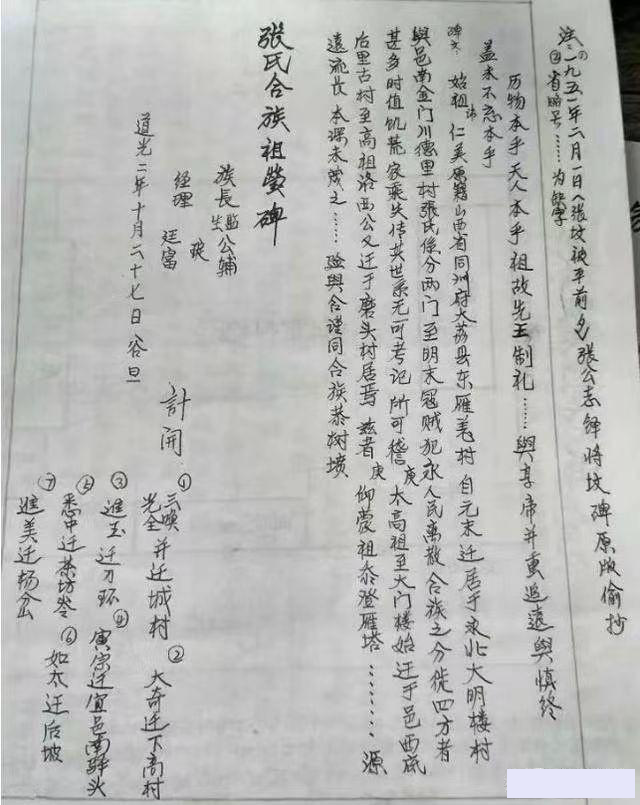 注:①一九五一年二月一日《张坟被平前夕》张公志绅将坟碑原版偷抄
②省略号……为缺字
万物本乎天人本乎祖故先王制礼……与享帝并重追远与慎终
盖未不忘本乎
碑文:始祖讳仁美原籍山西省同洲府大荔县东雁毛村自元末迁居于永北大明楼村
与邑南金门川德里村张氏系分两门至明末寇贼犯永人民离散合族之分徙四方者
甚多时值饥荒家乘失传其世系无可考记所可稽庚太高祖至大门楼始迁于邑西底
后里古村至高祖洛西公又迁于磨头村居焉兹者庚仰蒙祖泰登雁塔………源
远流长本深末茂之……与合谨同合族恭树坟
張氏合族祖茔碑
族長監生公辅
經理 廷富
道光二年十月二十七日谷旦
計開
①三 光全 并迁城村
②大奇迁下高村
③進玉迁刀环
④寅宗迁宜邑南驿头
⑤悉中迁茶坊岺
⑥如太迁后坡
⑦進美迁杨